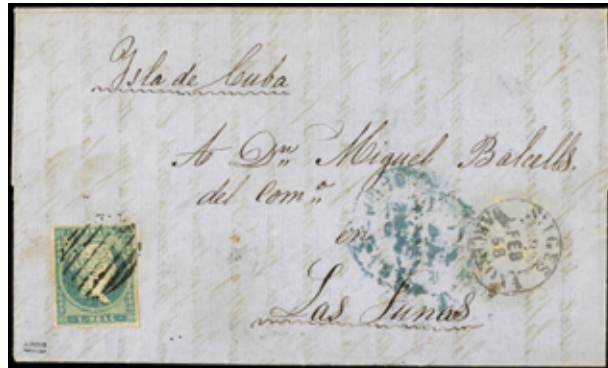 Isla de Cuba
A Dn Miguel Balcells.
del Como
en
Las Tunas
SITGES
FEB
58
BARCEL
1. REAL